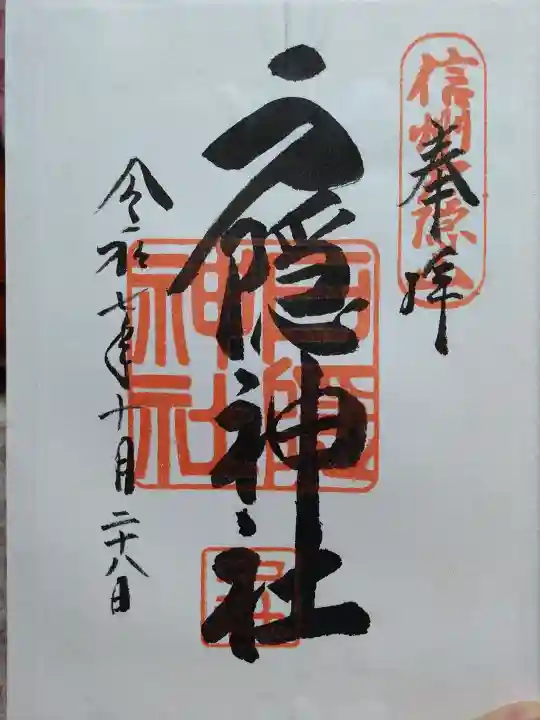 奉拝
信州戸隠山
戸隠神社
戸隠神社
令和七年十月二十八日